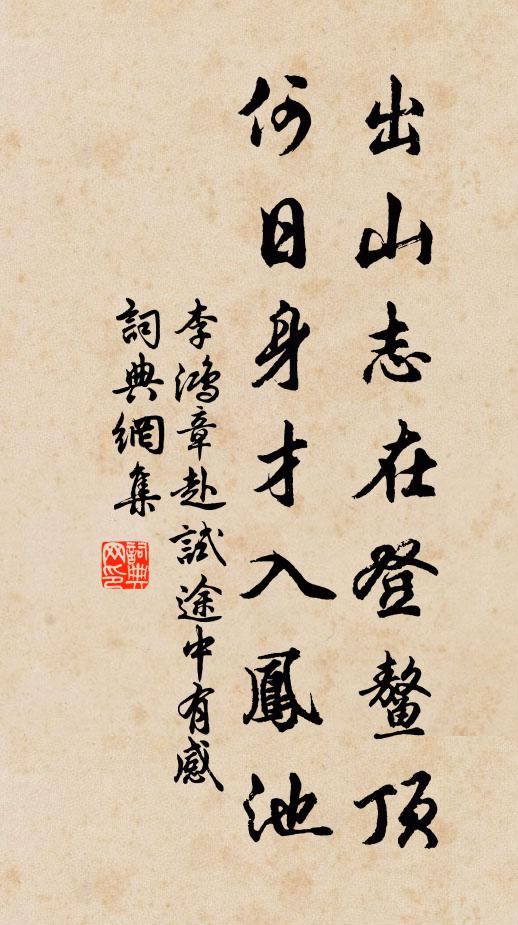 出山志在登鳌頂
何日身才入鳳池
李鴻章赴試途中有感
詞典網集
詞典网印